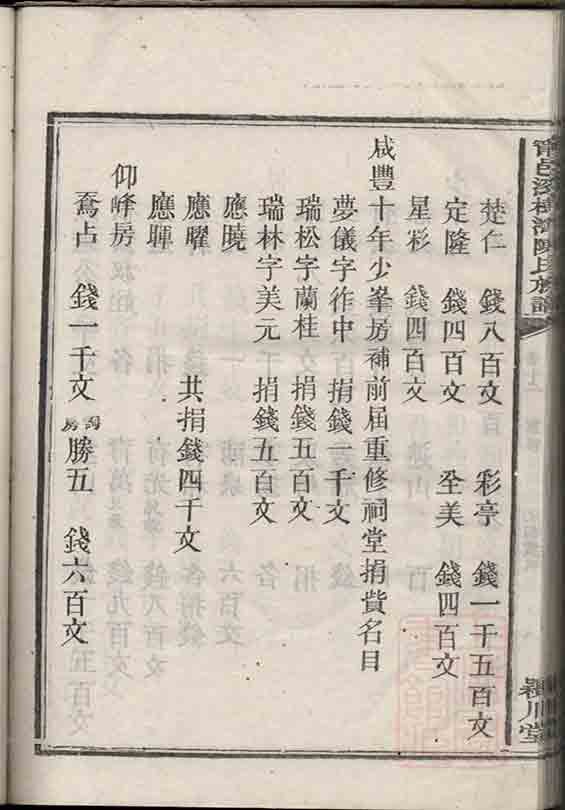 甯邑溪橋灣陳氏族譜
潁川堂
楚仁 錢八百文 彩亭 錢一千五百文
定隆 錢四百文 全美 錢四百文
星彩 錢四百文
咸豐十年少峯房補前届重修祠堂捐貲名目
夢儀字作中 捐錢一千文
瑞松字蘭桂 捐錢五百文
瑞林字美元 捐錢五百文
應曉
應曜 共捐錢四千文
應暉
仰峰房
喬占 錢一千文 房 勝五 錢六百文